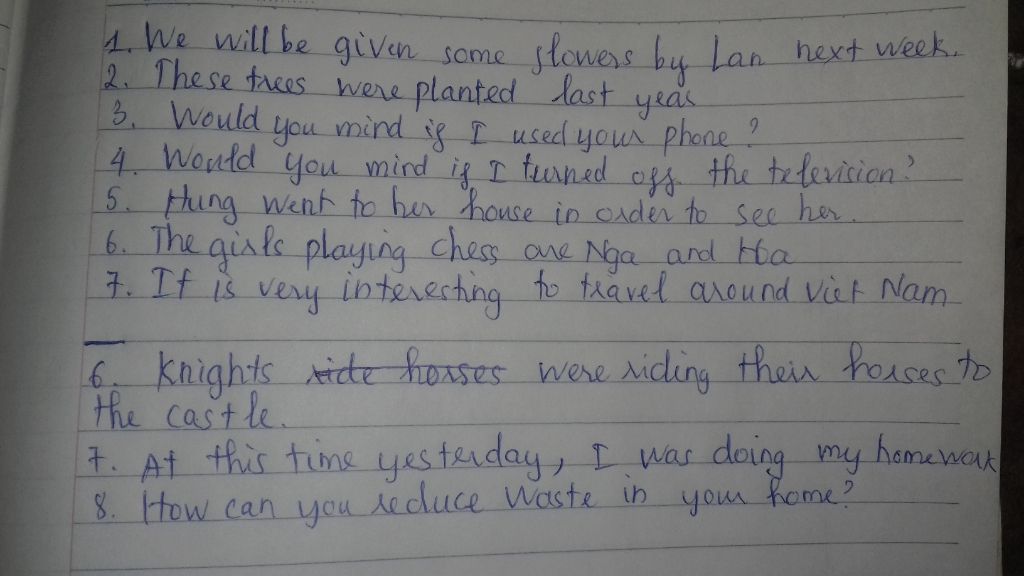 1. We will be given some flowers by Lan next week.
2. These trees were planted last year
3. Would you mind if I used your phone?
4. Would you mind if I turned off the television?
5. Hung went to her house in order to see her.
6. The girls playing chess are Nga and Hoa
7. It is very interesting to travel around Viet Nam
6. Knights ride horses were riding their horses to
the castle.
7. At this time yesterday, I was doing my homework
8. How can you reduce waste in your home?